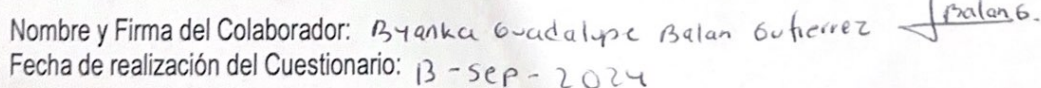 Nombre y Firma del Colaborador: Byanka Guadalupe Balan Gutierrez Balan G.
Fecha de realización del Cuestionario: 13 - Sep - 2024